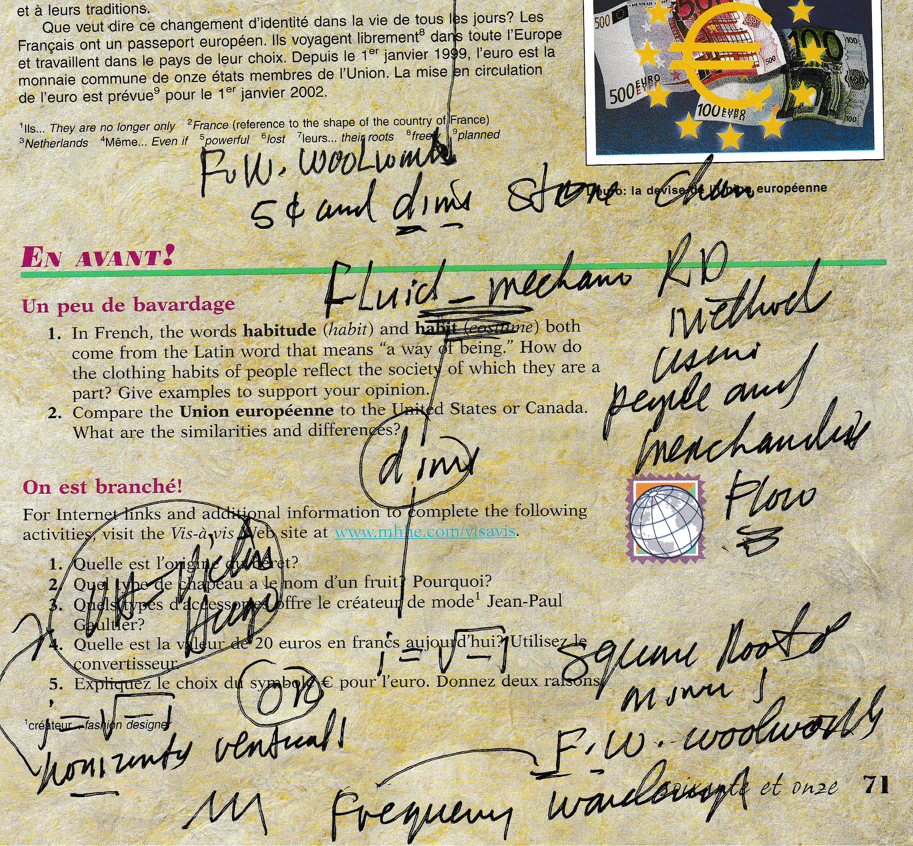 et à leurs traditions.
Que veut dire ce changement d'identité dans la vie de tous les jours? Les
Français ont un passeport européen. Ils voyagent librement⁸ dans toute l'Europe
et travaillent dans le pays de leur choix. Depuis le 1er janvier 1999, l'euro est la
monnaie commune de onze états membres de l'Union. La mise en circulation
de l'euro est prévue⁹ pour le 1er janvier 2002.
¹Ils... They are no longer only ²France (reference to the shape of the country of France)
³Netherlands ⁴Même... Even if ⁵powerful ⁶lost ⁷leurs... their roots ⁸freely ⁹planned
500
500 EURO
100
100 EURO
L'euro: la devise de l'Union européenne
F.W. woolworth
5¢ and dims store chain
EN AVANT!
Fluid - mechano RD
method
using
people and
merchandise
Flow
Un peu de bavardage
1. In French, the words habitude (habit) and habit (costume) both
come from the Latin word that means "a way of being." How do
the clothing habits of people reflect the society of which they are a
part? Give examples to support your opinion.
2. Compare the Union européenne to the United States or Canada.
What are the similarities and differences?
dims
On est branché!
For Internet links and additional information to complete the following
activities, visit the Vis-à-vis Web site at www.mhhe.com/visavis.
1. Quelle est l'origine du béret?
2. Quel type de chapeau a le nom d'un fruit? Pourquoi?
3. Quels types d'accessoires offre le créateur de mode¹ Jean-Paul
Gaultier?
4. Quelle est la valeur de 20 euros en francs aujourd'hui? Utilisez le
convertisseur.
5. Expliquez le choix du symbole € pour l'euro. Donnez deux raisons.
Hugo
i = √-1
square Roots
¹créateur... fashion designer
j = √-1
F.W. woolworth
Frequency
soixante et onze 71